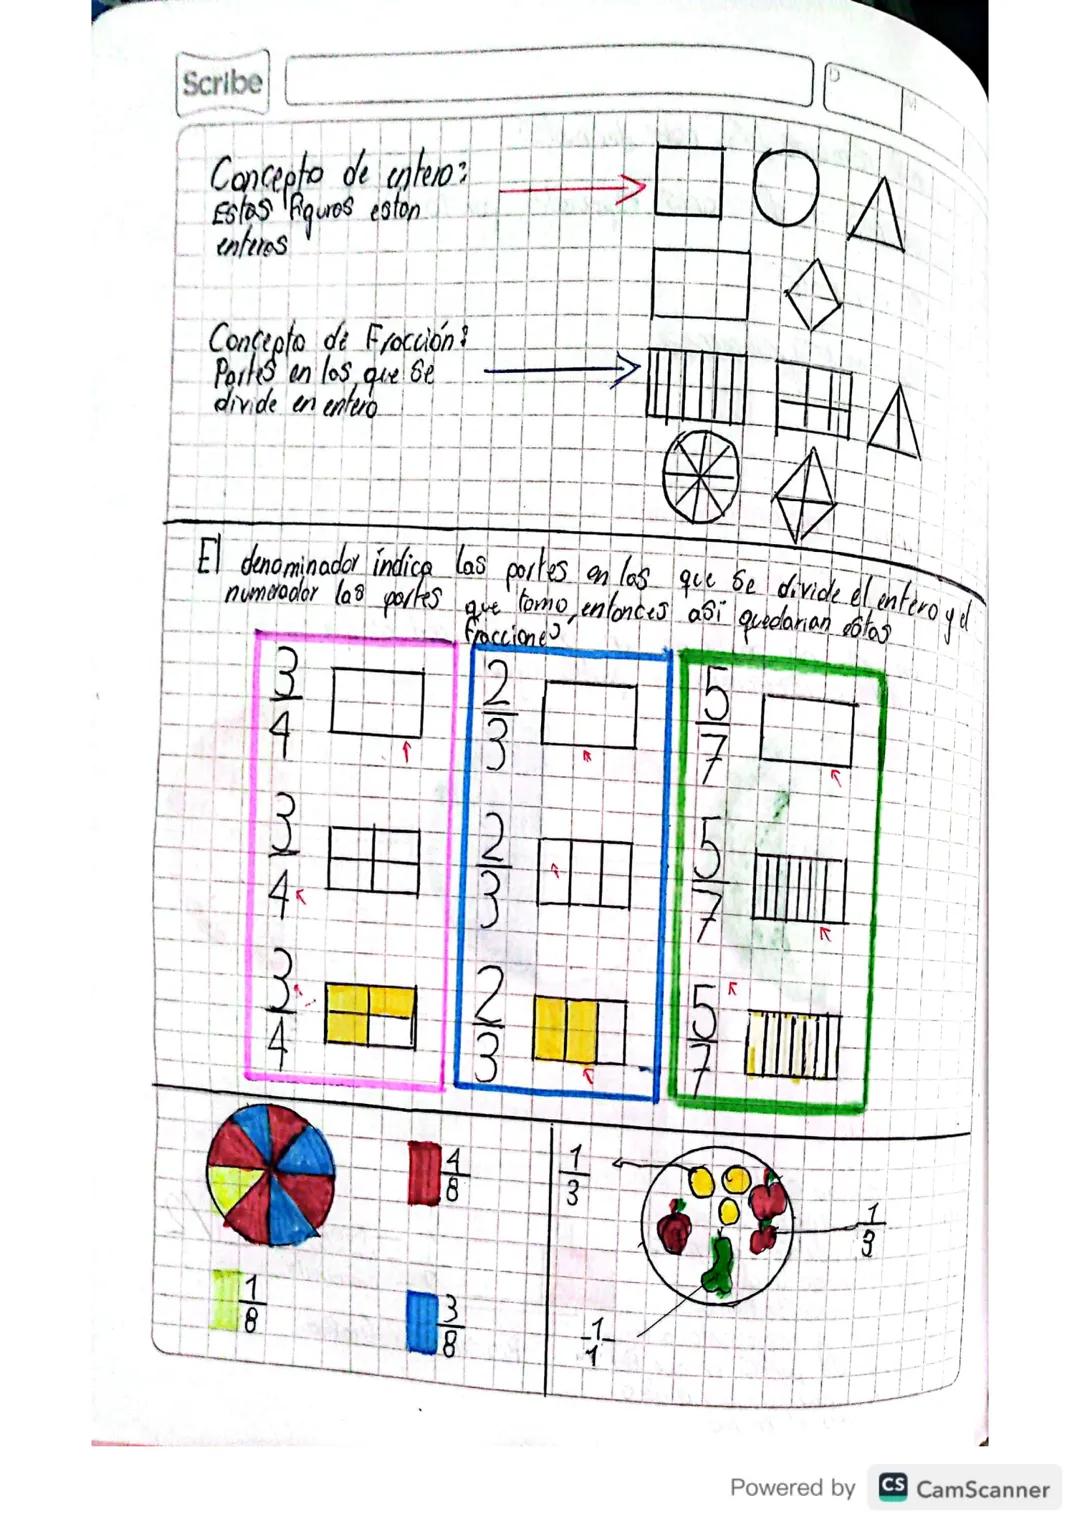 Scribe
D
M
Concepto de entero:
Estas figuras estan
enteras
Concepto de Fracción:
Partes en las que se
divide en entero
El denominador indica las partes en las que se divide el entero y el
numerador las partes que tomo, entonces así quedarian estas
fracciones
3/4
2/3
5/7
3/4
2/3
5/7
3/4
2/3
5/7
4/8
1/3
1/3
1/8
3/8
1/1
Powered by CS CamScanner